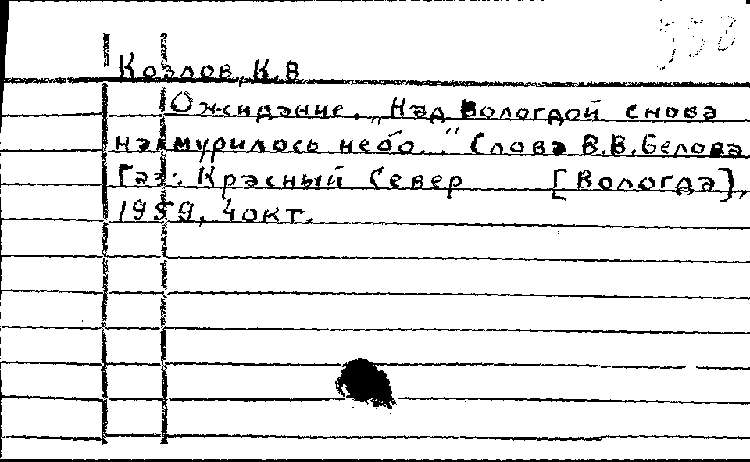 558
Козлов, К.В
Ожидание. „Над Вологдой снова
нахмурилось небо.." Слова В.В.Белова
Газ: Красный Север [Вологда],
1959, 4 окт.